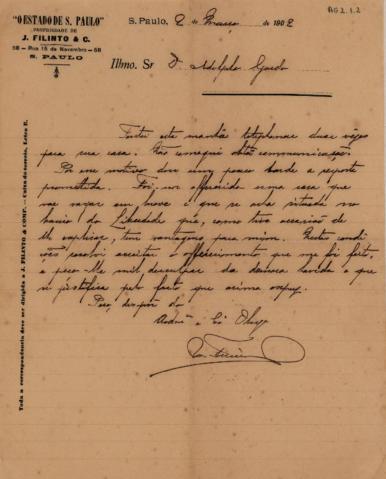 AG 2.1.2
"O ESTADO DE S. PAULO"
PROPRIEDADE DE
J. FILINTO & C.
58 - Rua 15 de Novembro - 58
S. PAULO
S. Paulo, 2 de Março de 1902
Illmo. Sr Dr Adolpho Gordo
Tentei esta manhã telephonar duas vezes
para sua casa. Não consegui obter communicação.
Por esse motivo dou um pouco tarde a resposta
promettida. Foi-me offerecida uma casa que
vae vagar em breve e que se acha situada no
bairro da Liberdade que, como tive occasião de
lhe explicar, tem vantagens para mim. Nestas condi-
ções resolvi acceitar o offerecimento que me foi feito,
e peço-lhe mil desculpas da demora havida e que
se justifica pelo facto que acima
Peço, dispôr do
Toda a correspondencia deve ser dirigida a J. FILINTO & COMP. - Caixa do correio, Letra E.